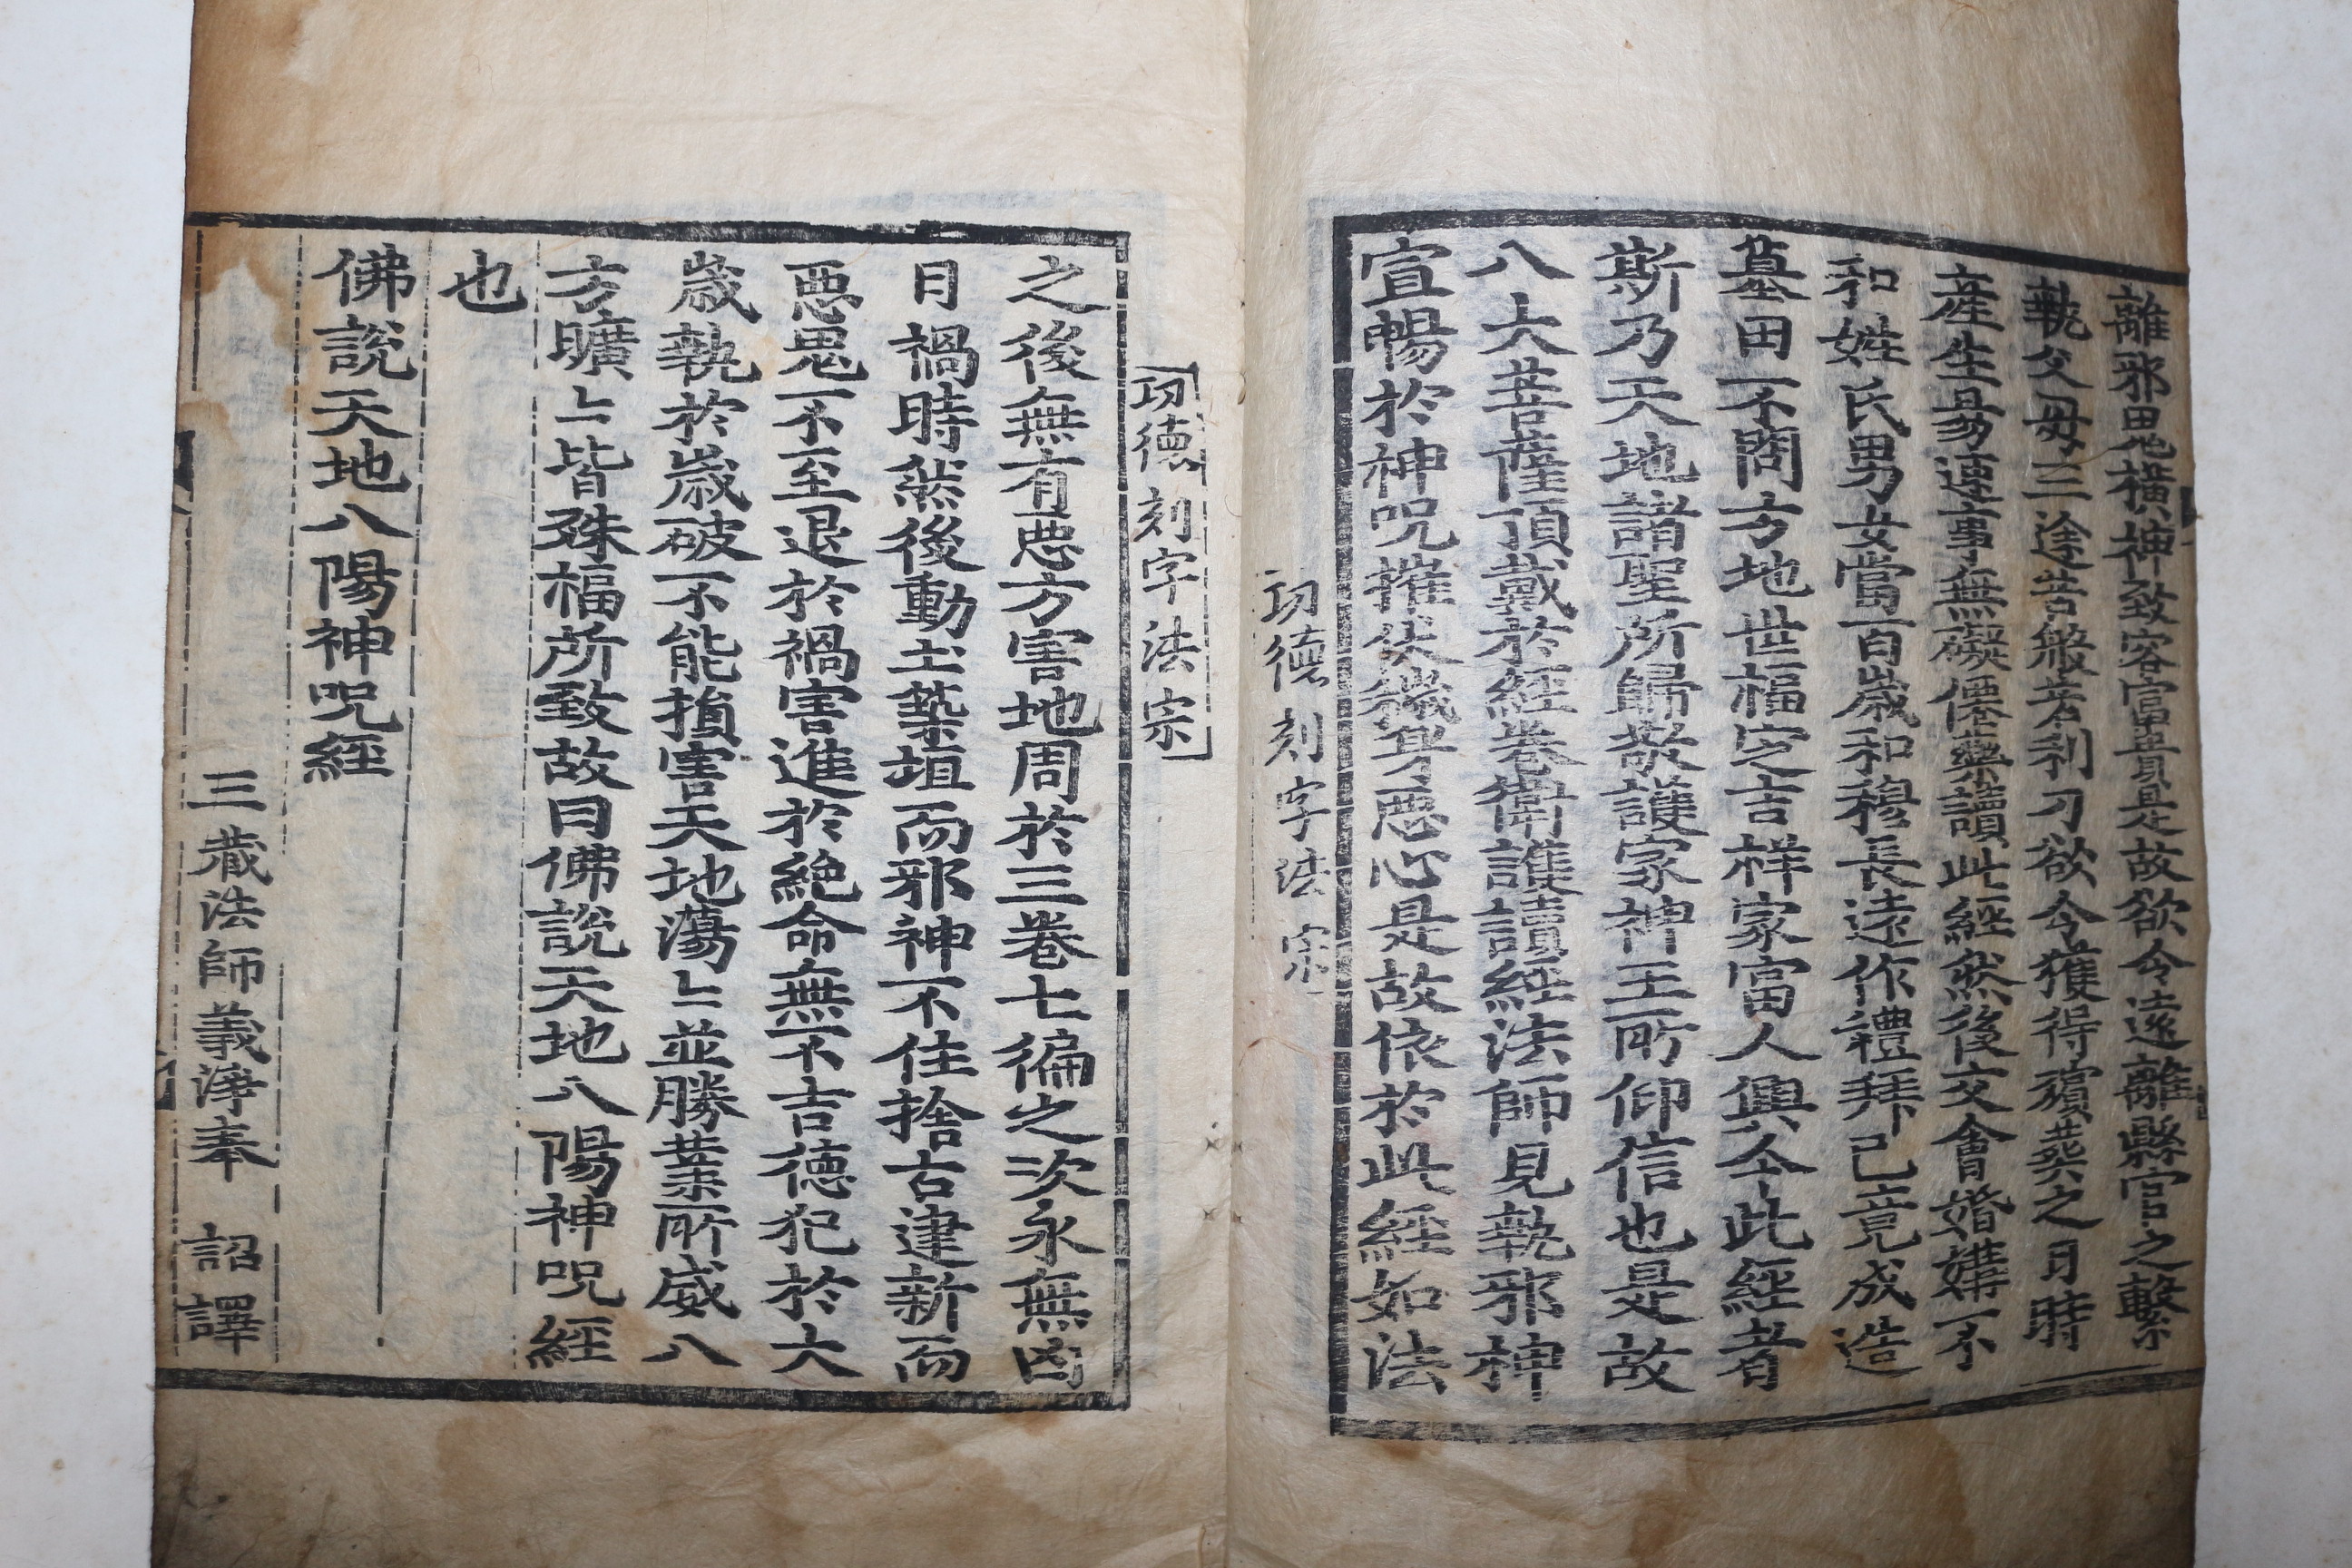 離邪田地橫神致容富貴是故欲令遠離縣官之繫
執父母三途苦般若利刀欲令獲得殯葬之日時
産生易速事無礙僊藥讀此經然後交會婚媾不
和姓氏男女當百歲和穆長遠作禮拜已竟成造
墓田不問方地世福定吉祥家富人興今此經者
斯乃天地諸聖所歸敬護家神王所仰信也是故
八大菩薩頂戴於經卷衛護讀經法師見執邪神
宣暢於神呪摧伏穢身悪心是故依於此經如法
功德 刻字 法宗
功德 刻字 法宗
之後無有悪方害地周於三卷七徧之次永無凶
日禍時然後動土築垣而邪神不住捨古建新而
悪鬼不至退於禍害進於絶命無不吉德犯於大
歲執於歲破不能損害天地蕩上並勝業所威八
方曠上皆殊福所致故曰佛說天地八陽神呪經
也
佛說天地八陽神呪經
三藏法師義淨奉 詔譯